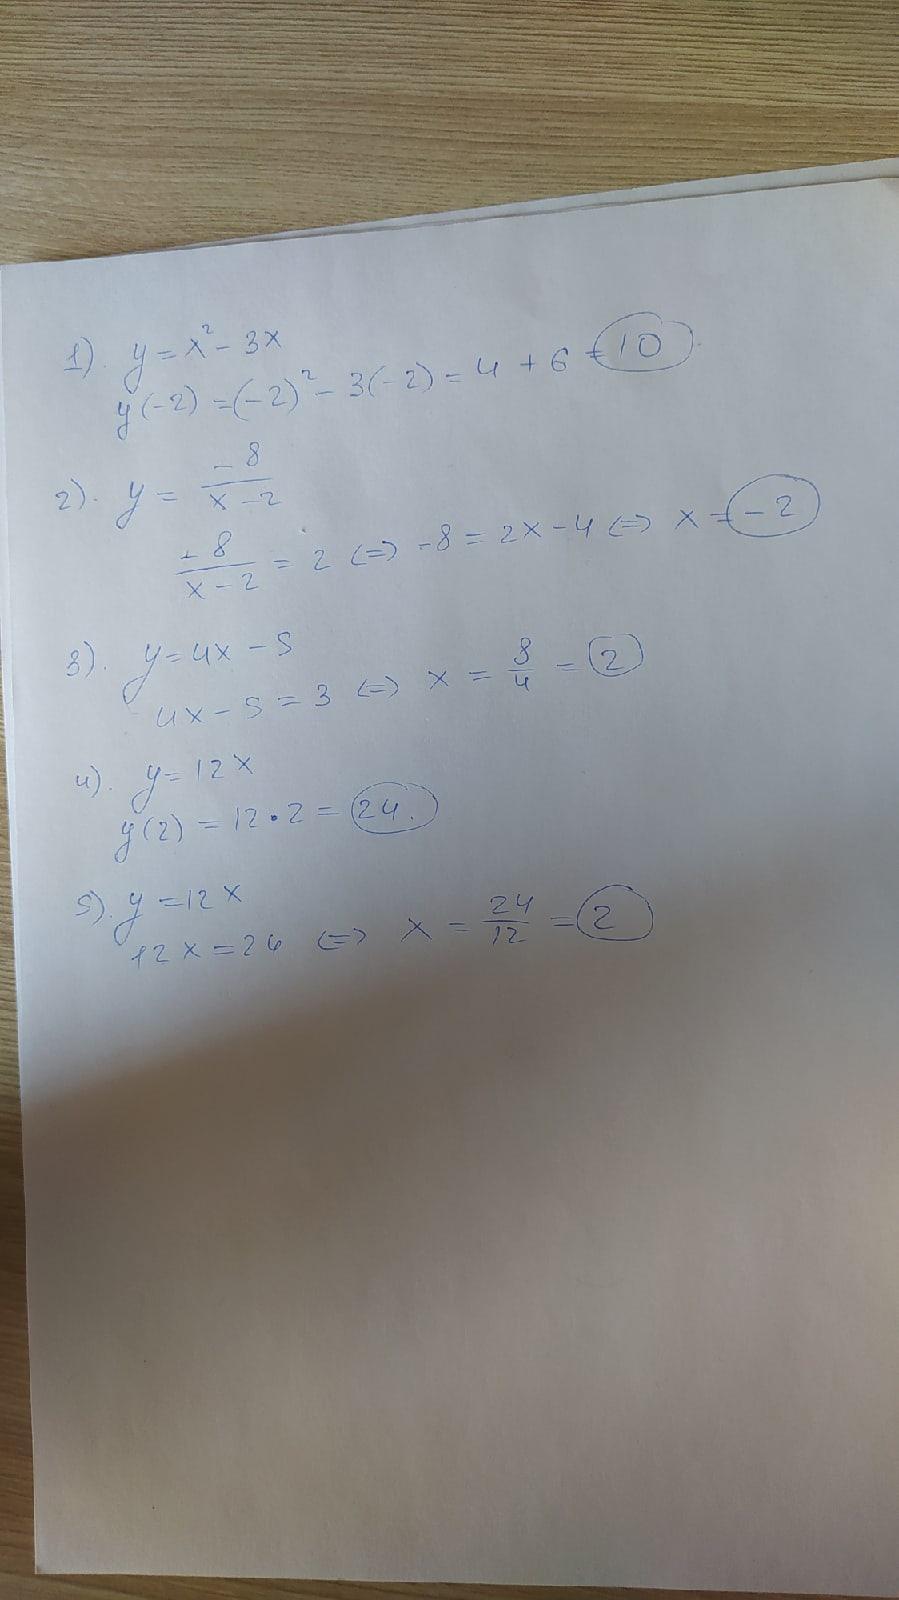 1). y = x² - 3x
y(-2) = (-2)² - 3(-2) = 4 + 6 = 10
2). y = -8/(x-2)
-8/(x-2) = 2 <=> -8 = 2x - 4 <=> x = -2
3). y = 4x - 5
4x - 5 = 3 <=> x = 8/4 = 2
4). y = 12x
y(2) = 12 • 2 = 24.
5). y = 12x
12x = 24 <=> x = 24/12 = 2